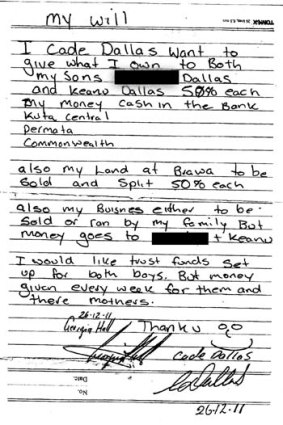 my will
I Cade Dallas want to
give what I own to Both
my Sons Dallas
and Keanu Dallas 50% each
my money cash in the Bank
Kuta central
Permata
Commonwealth
also my Land at Brawa to be
Sold and Split 50% each
also my Buisnes either to be
Sold or ran by my family But
money goes to + Keanu
I would like trust funds set
up for both boys. But money
given every week for them and
there mothers.
26-12-11
Georgia Hall Thanku
Cade Dallas
Date
No.
26-12-11